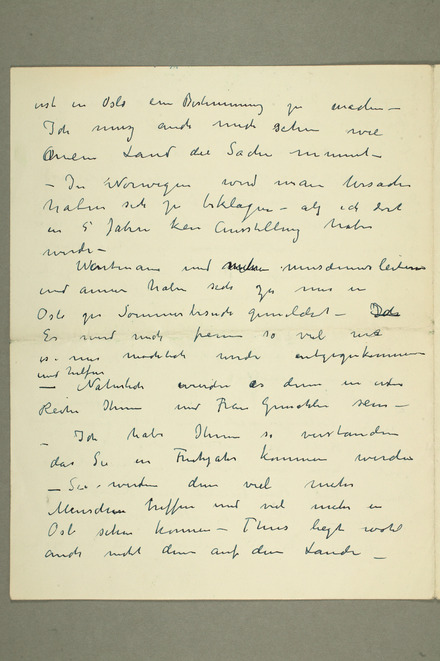 erst in Oslo eine Bestimmung zu machen —
Ich muss auch noch sehen wie
mein Land die Sache nimmt —
— In Norwegen wird man Ursache
haben sich zu beklagen — als ich erst
in 5 Jahre kein Ausstellung habe
werde —
und museumsleitern
und annen haben sich zu uns in
Oslo zu Sommerbesuch gemeldet —
Es wird mich freuen so viel wie
es mir möglich werde entgegenkommen
und helfen
— Natürlich werden es denn in erster
Reihe Ihnen und Frau Gemahlin sein —
— Ich habe Ihnen so verstanden
das Sie in Frühjahr kommen werden
— Sie werden denn viel mehr
Menschen treffen und viel mehr in
Oslo sehen können — Thiis liegt wohl
auch nicht denn auf dem Lande —